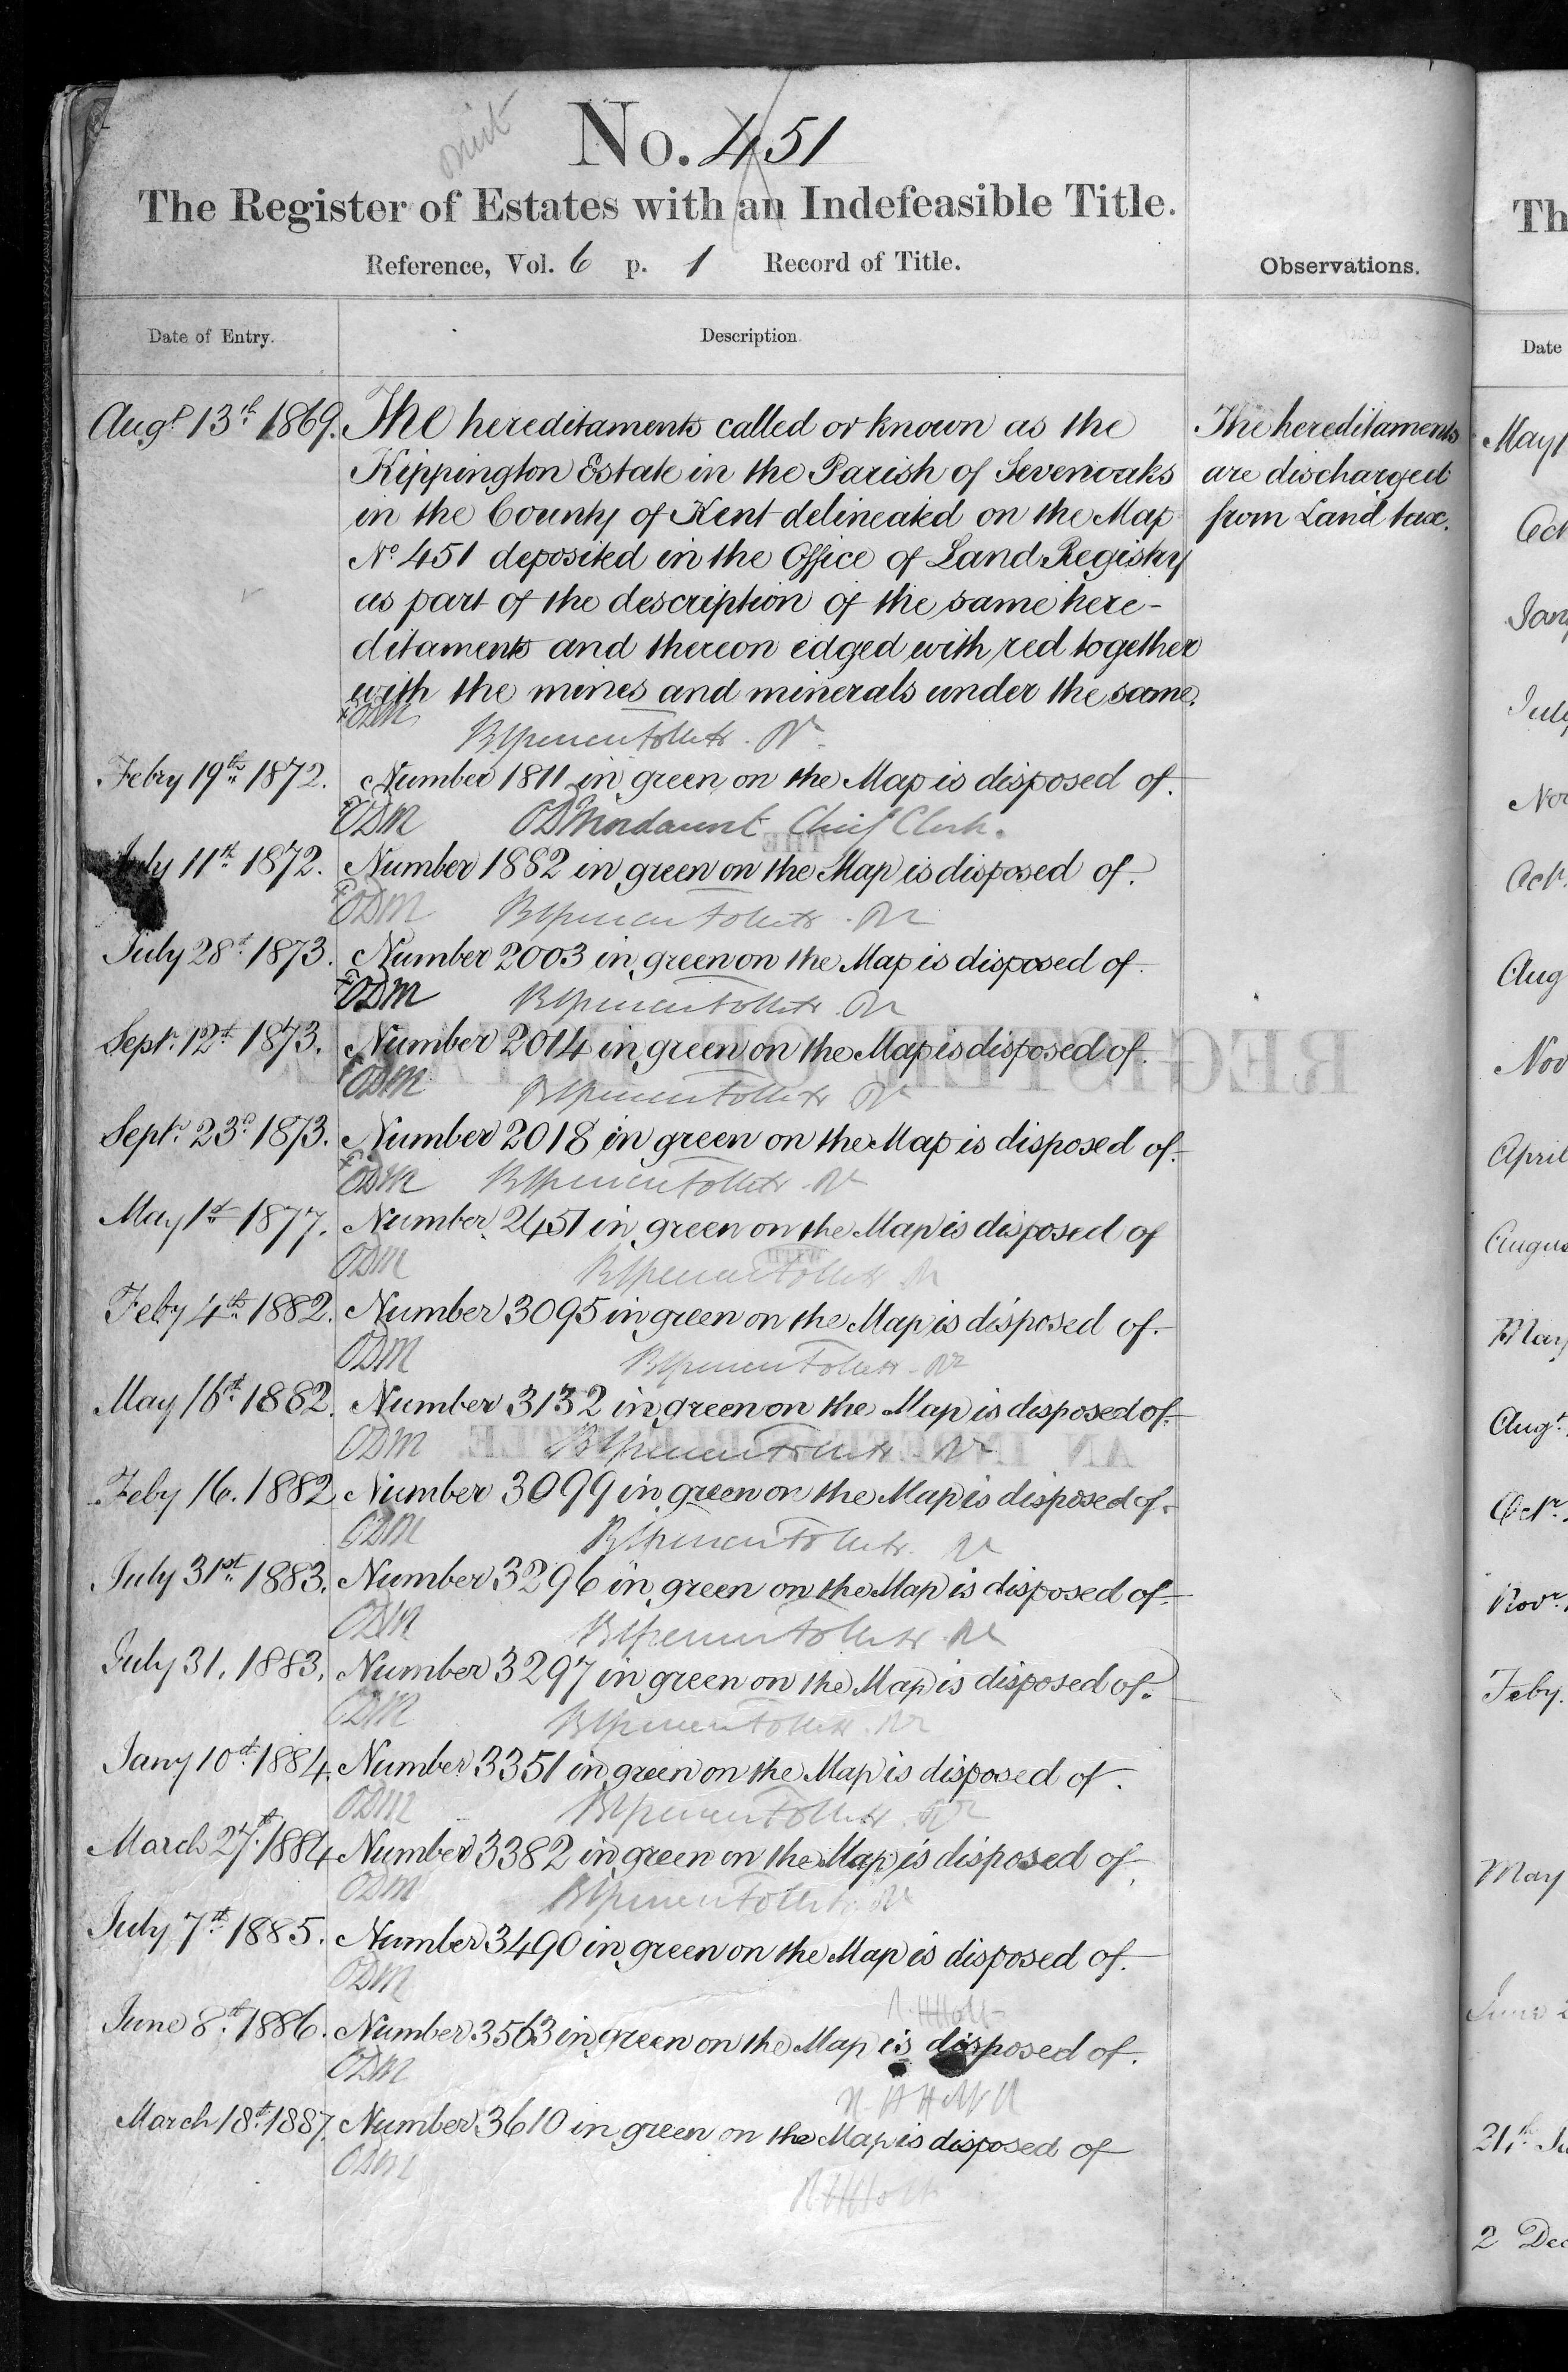 omit
No. 451
The Register of Estates with an Indefeasible Title.
Reference, Vol. 6 p. 1 Record of Title.
Observations.
Date of Entry.
Description.
Augt. 13th 1869. The hereditaments called or known as the
Kippington Estate in the Parish of Sevenoaks
in the County of Kent delineated on the Map
No 451 deposited in the Office of Land Registry
as part of the description of the same here-
ditaments and thereon edged with red together
with the mines and minerals under the same.
The hereditaments
are discharged
from Land tax.
ODM Brent Spencer Follett. Rr
Febry 19th 1872. Number 1811 in green on the Map is disposed of.
ODM ODMordaunt Chief Clerk.
July 11th 1872. Number 1882 in green on the Map is disposed of.
ODM
July 28th 1873. Number 2003 in green on the Map is disposed of.
ODM
Sept. 12th 1873. Number 2014 in green on the Map is disposed of.
ODM
Sept. 23d 1873. Number 2018 in green on the Map is disposed of.
ODM
May 1st 1877. Number 2451 in green on the Map is disposed of
ODM
Feby 4th 1882. Number 3095 in green on the Map is disposed of.
ODM
May 16th 1882. Number 3132 in green on the Map is disposed of.
ODM
Feby 16. 1882. Number 3099 in green on the Map is disposed of.
ODM
July 31st 1883. Number 3296 in green on the Map is disposed of.
ODM
July 31. 1883. Number 3297 in green on the Map is disposed of.
ODM
Jany 10th 1884. Number 3351 in green on the Map is disposed of.
ODM
March 27th 1884 Number 3382 in green on the Map is disposed of.
ODM
July 7th 1885. Number 3490 in green on the Map is disposed of.
ODM
R. H Holt
June 8th 1886. Number 3563 in green on the Map is disposed of.
ODM
R. H Holt
March 18th 1887. Number 3610 in green on the Map is disposed of
ODM
R H Holt
Th
Date
May 1
Oct
Jany
July
Nov
Octr.
Aug
Nov
April
Augus
May
Augt.
Octr.
Novr.
Feby.
May
June 2
21st Ju
2 Dec